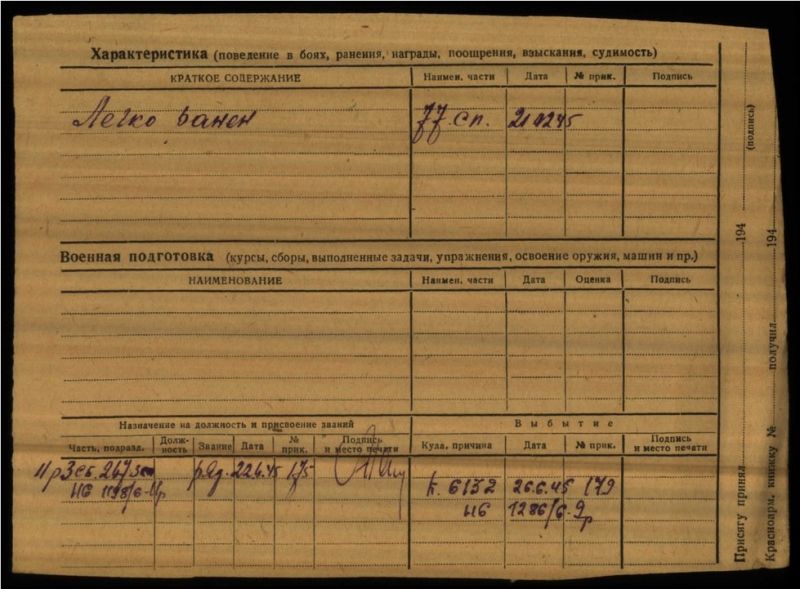 Характеристика (поведение в боях, ранения, награды, поощрения, взыскания, судимость)
КРАТКОЕ СОДЕРЖАНИЕ Наимен. части Дата № прик. Подпись
Легко ранен 77 сп.
Военная подготовка (курсы, сборы, выполненные задачи, упражнения, освоение оружия, машин и пр.)
НАИМЕНОВАНИЕ Наимен. части Дата Оценка Подпись
Назначение на должность и присвоение званий Выбытие
Часть, подразд. Должность Звание Дата № прик. Подпись и место печати Куда, причина Дата № прик. Подпись и место печати
267 22.6.45 175
К. 6132 26.6.45 179
1286/6
Присягу принял 194 (подпись)
Красноарм. книжку № получил 194